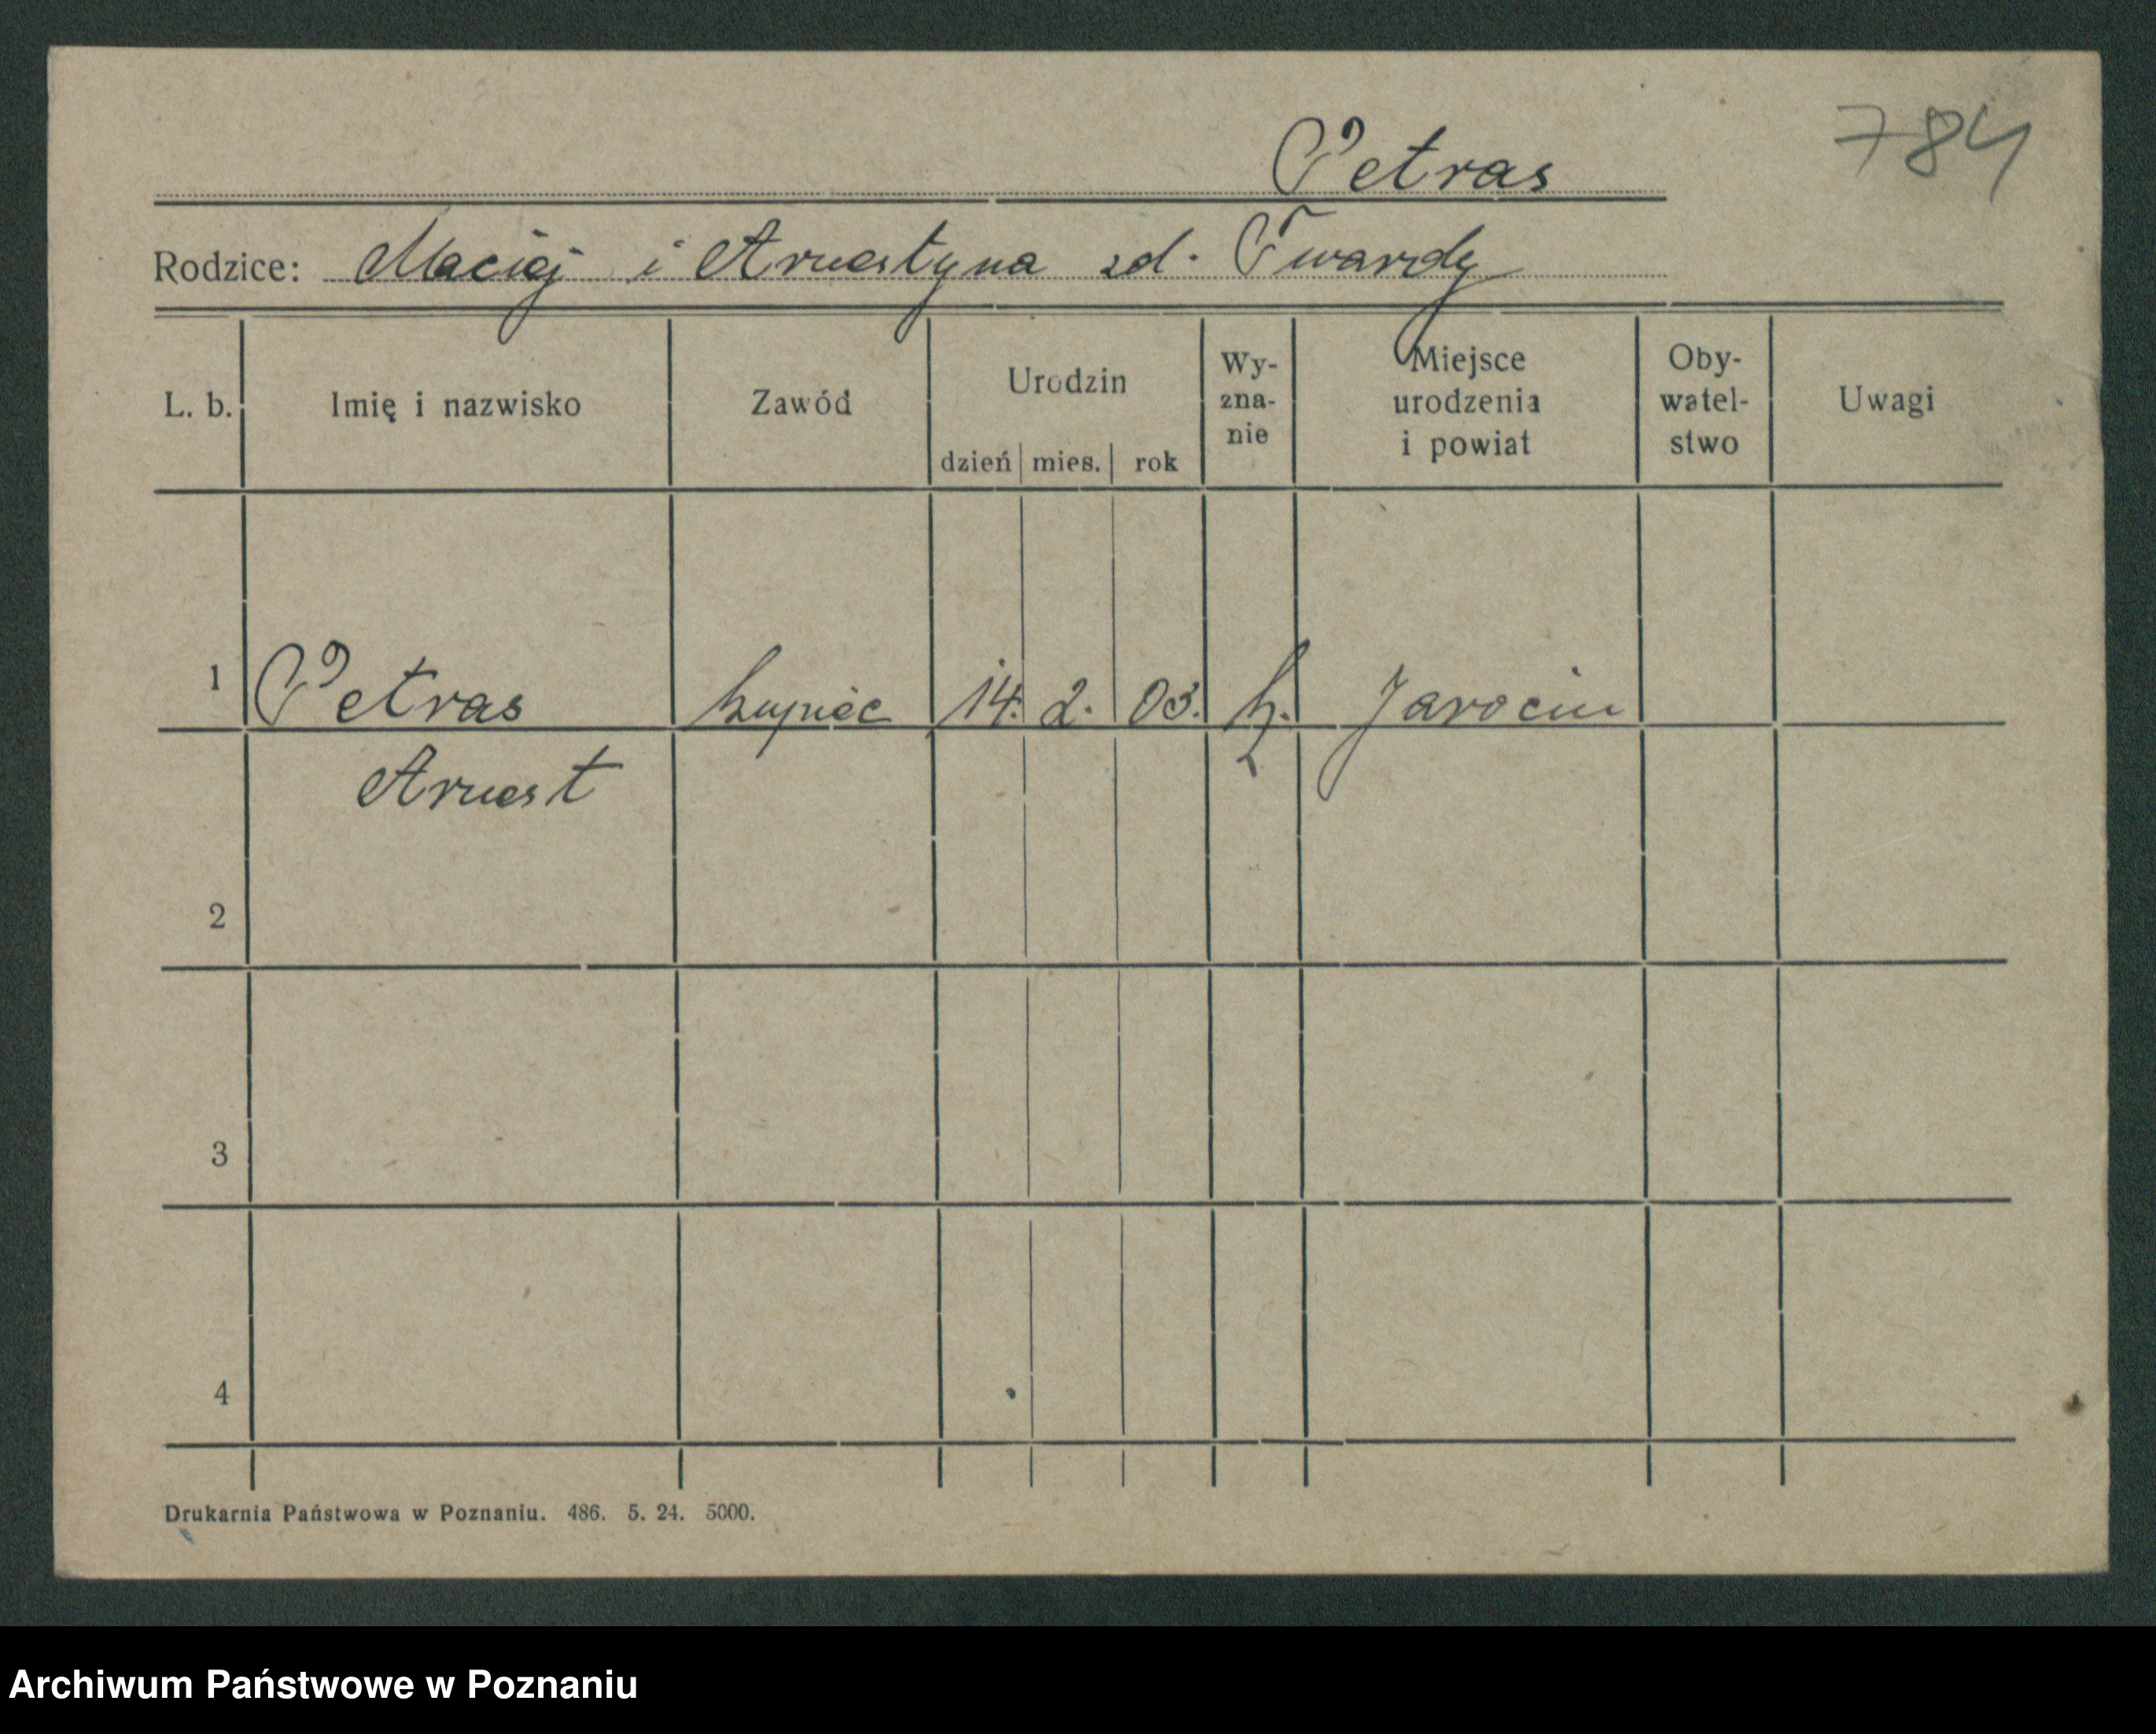 784
Petras
Rodzice: Maciej i Arnestyna zd. Twardy
L. b. Imię i nazwisko Zawód Urodzin dzień mies. rok Wy-zna-nie Miejsce urodzenia i powiat Oby-watel-stwo Uwagi
1 Petras kupiec 14. 2. 03. k. Jarocin
Arnest
2
3
4
Drukarnia Państwowa w Poznaniu. 486. 5. 24. 5000.
Archiwum Państwowe w Poznaniu